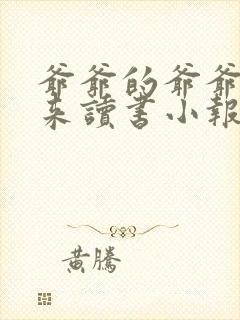 爺爺的爺爺
来讀書小報
黄騰